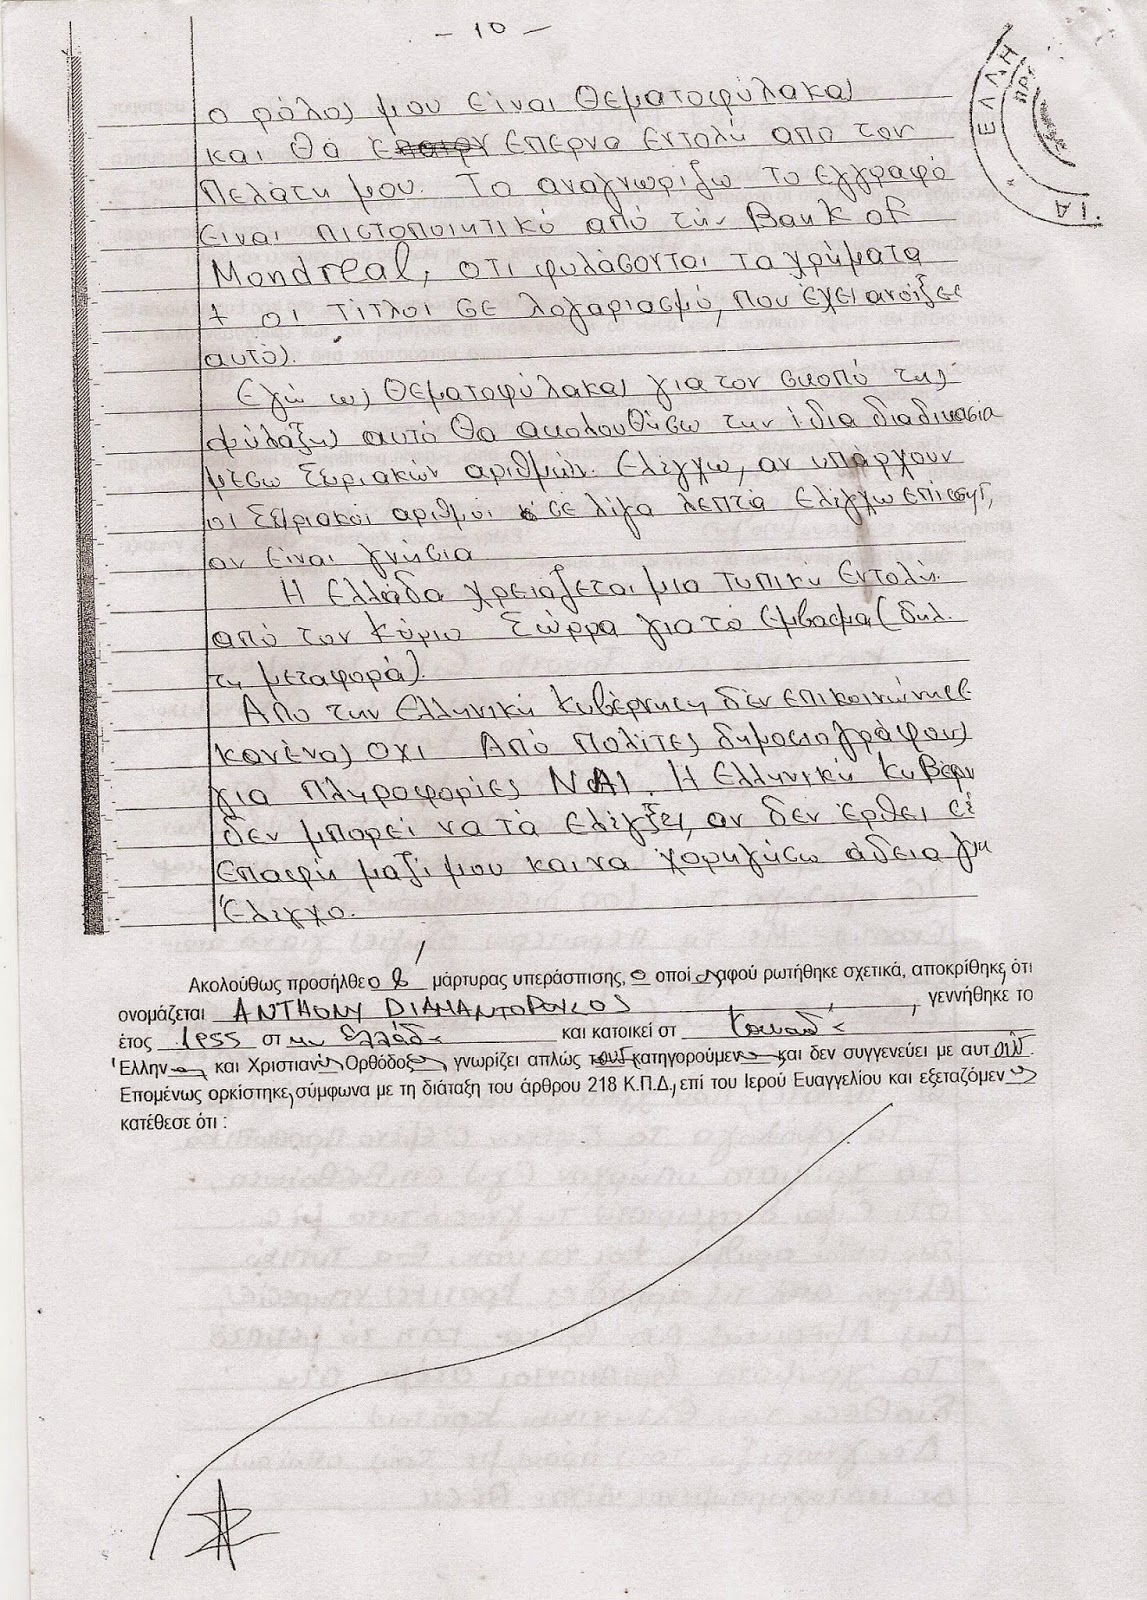 - 10 -
ΕΛΛΗ
ΠΡ
ΤΙΑ
ο ρόλος μου είναι Θεματοφύλακας
και θα επερνα εντολή απο τον
πελάτη μου. Το αναγνωρίζω το εγγραφό
είναι πιστοποιητικό από την Bank of
Mondreal, οτι φυλάσονται τα χρήματα
+ οι τίτλοι σε λογαριασμό, που έχει ανοίξει
αυτός.
Εγώ ως Θεματοφύλακας για τον σκοπό της
φύλαξης αυτό θα ακολουθήσω την ίδια διαδικασία
μέσω Σειριακών αριθμών. Ελέγχω, αν υπάρχουν
οι Σειριακοί αριθμοί σε λίγα λεπτά ελέγχω επίσης,
αν είναι γνήσια
Η Ελλάδα χρειάζεται μια τυπική Εντολή
από τον Κύριο Σώρρα για το έμβασμα (δηλ.
τη μεταφορά).
Απο την Ελληνική Κυβέρνηση δέν επικοινώνησε
κανένας οχι Από πολίτες δημοσιογράφους
για πληροφορίες ΝΑΙ. Η Ελληνική Κυβέρν
δεν μπορεί να τα ελέγξει, αν δεν έρθει σε
επαφή μαζί μου και να χορηγήσω άδεια για
Έλεγχο.
Ακολούθως προσήλθε ο 8' μάρτυρας υπεράσπισης, ο οποίος αφού ρωτήθηκε σχετικά, αποκρίθηκε, ότι
ονομάζεται ANTHONY DIAMANTOPOULOS, γεννήθηκε το
έτος 1955 στην Ελλάδα και κατοικεί στ Καναδά
Έλλην και Χριστιανός Ορθόδοξος γνωρίζει απλώς τους κατηγορούμενο και δεν συγγενεύει με αυτ
Επομένως ορκίστηκε, σύμφωνα με τη διάταξη του άρθρου 218 Κ.Π.Δ., επί του Ιερού Ευαγγελίου και εξεταζόμεν
κατέθεσε ότι :